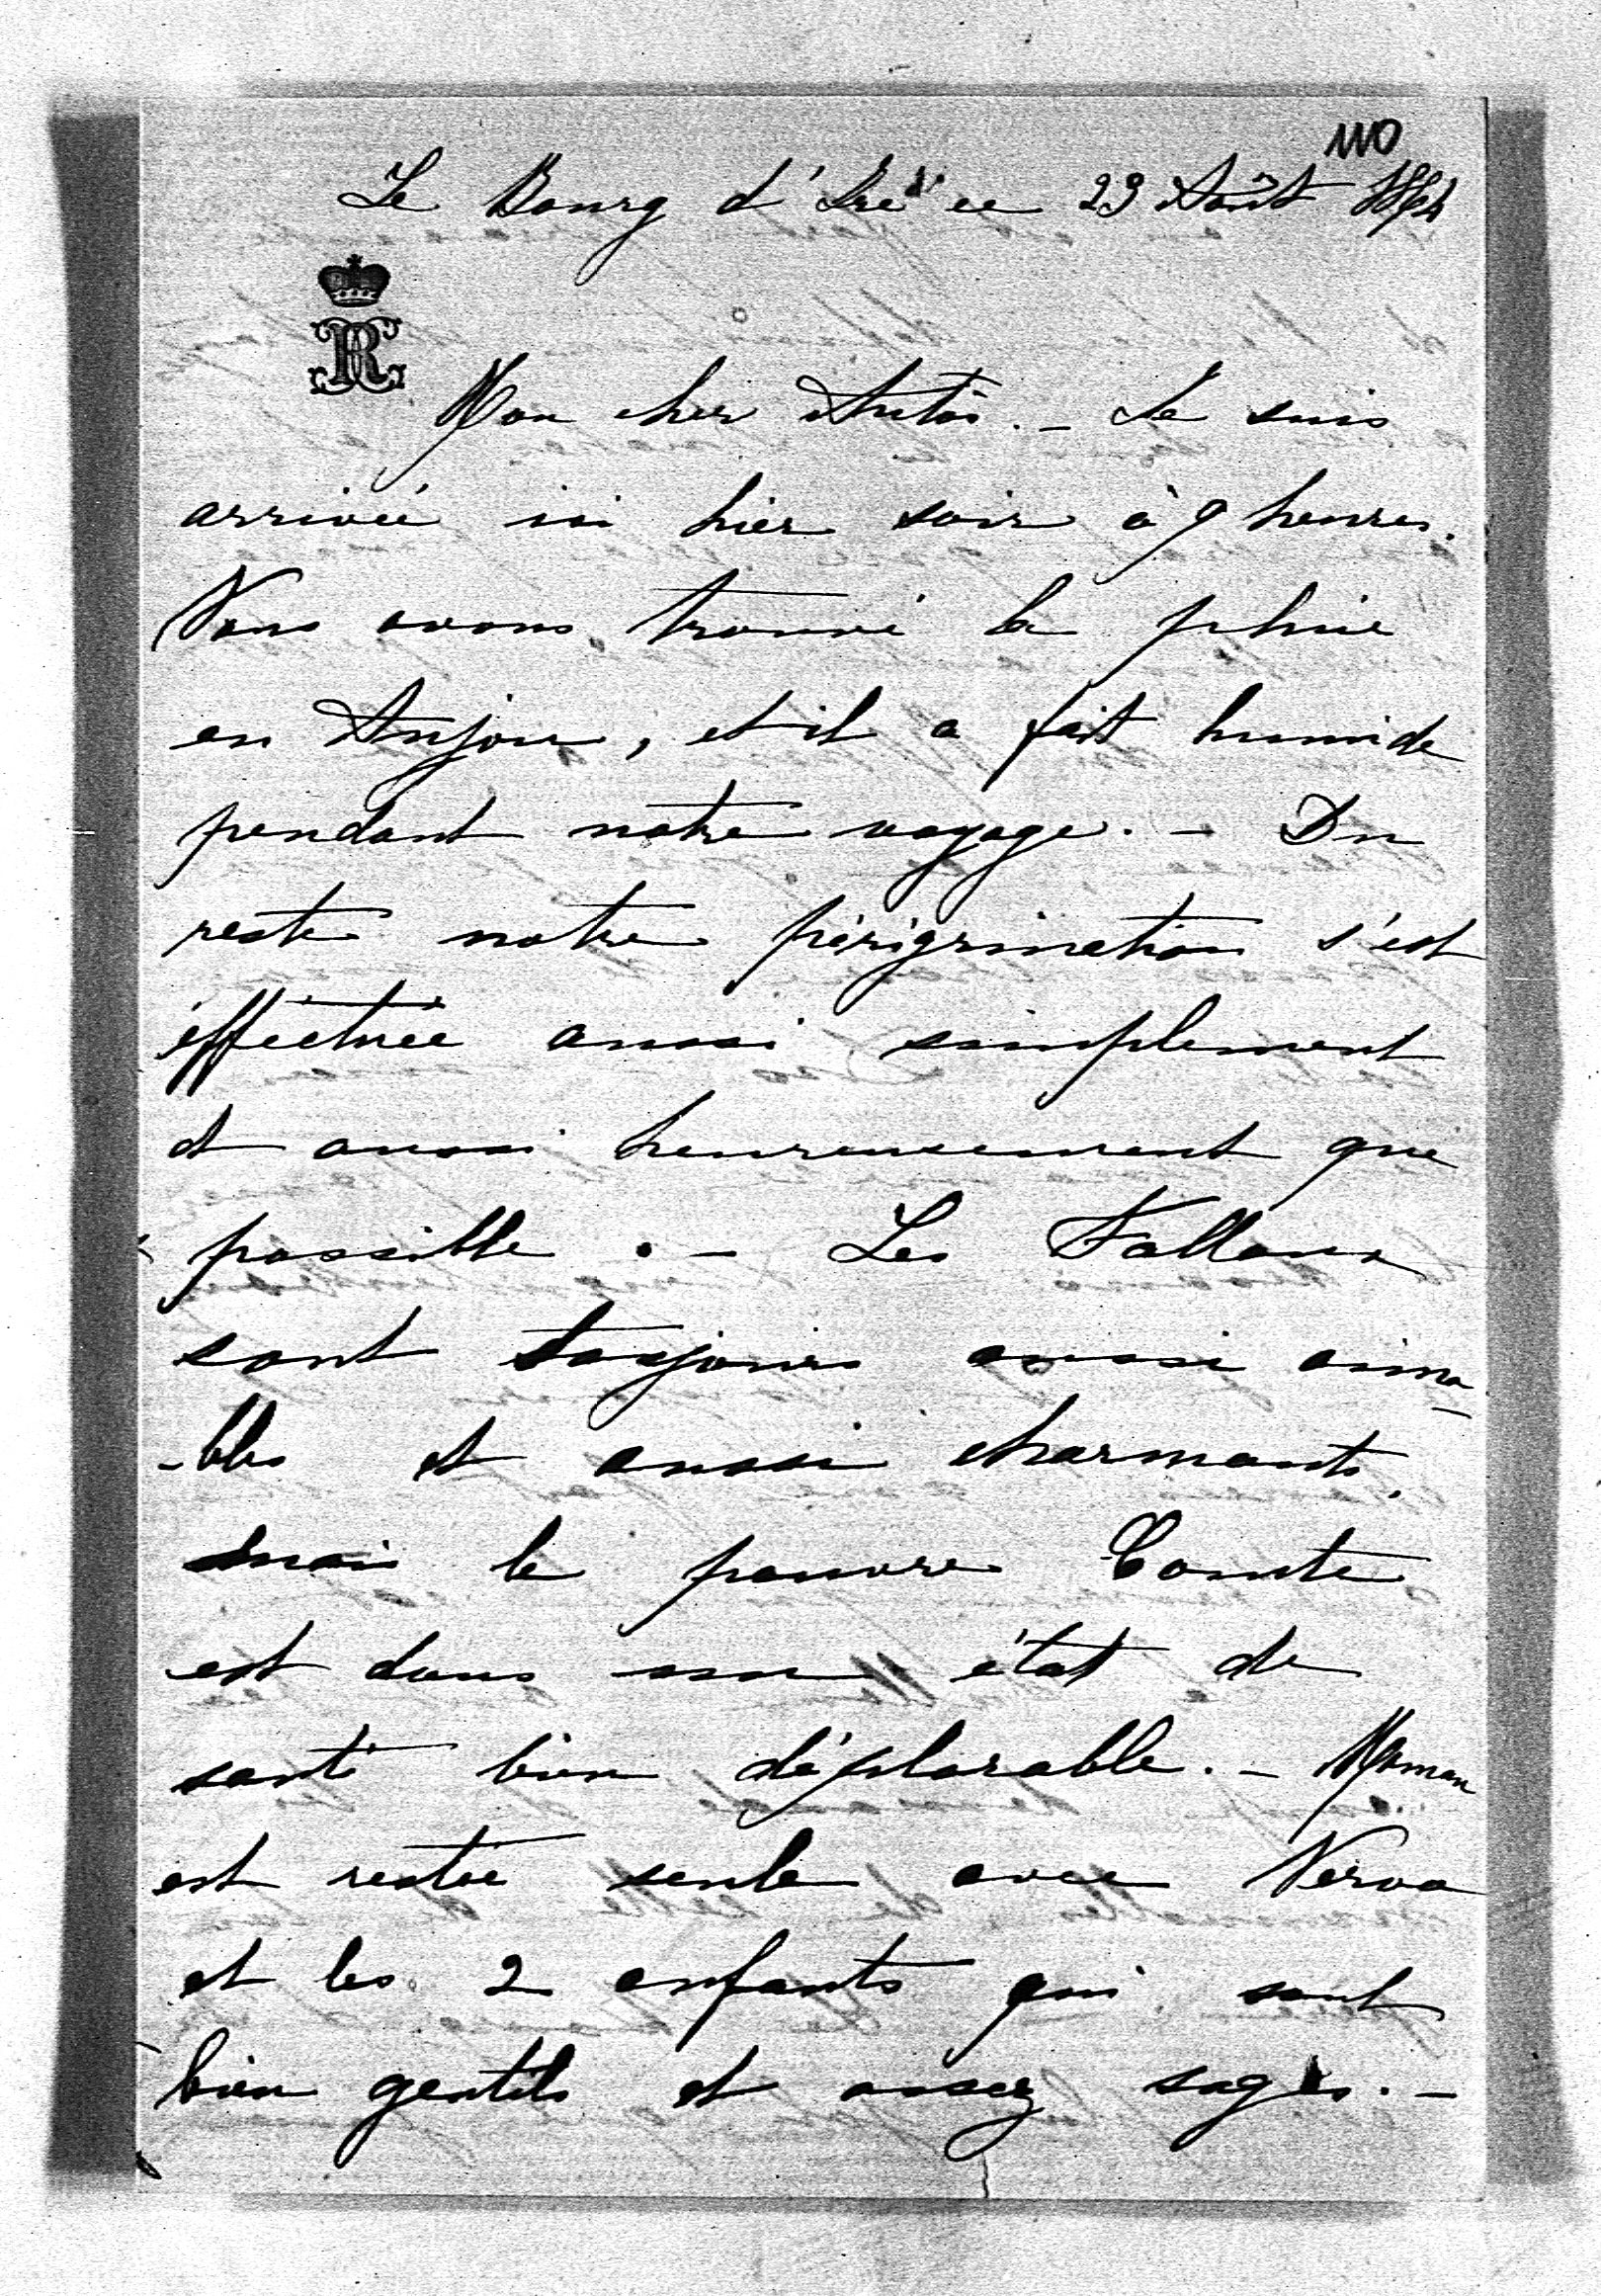 110
Le Bourg d'Iré ce 29 Août
R
Mon cher Antón. _ Je suis
arrivée ici hier soir à 9 heures.
Nous avons trouvé la pluie
en Anjou, et il a fait humide
pendant notre voyage. _ Du
reste notre périgrination s'est
éffectuée aussi simplement
et aussi heureusement que
possible. _ Les Falloux
sont toujours aussi aima-
-bles et aussi charmants,
mais le pauvre Comte
est dans un état de
santé bien déplorable. _ Maman
est restée seule avec Nerva
et les 2 enfants qui sont
bien gentils et assez sages. _